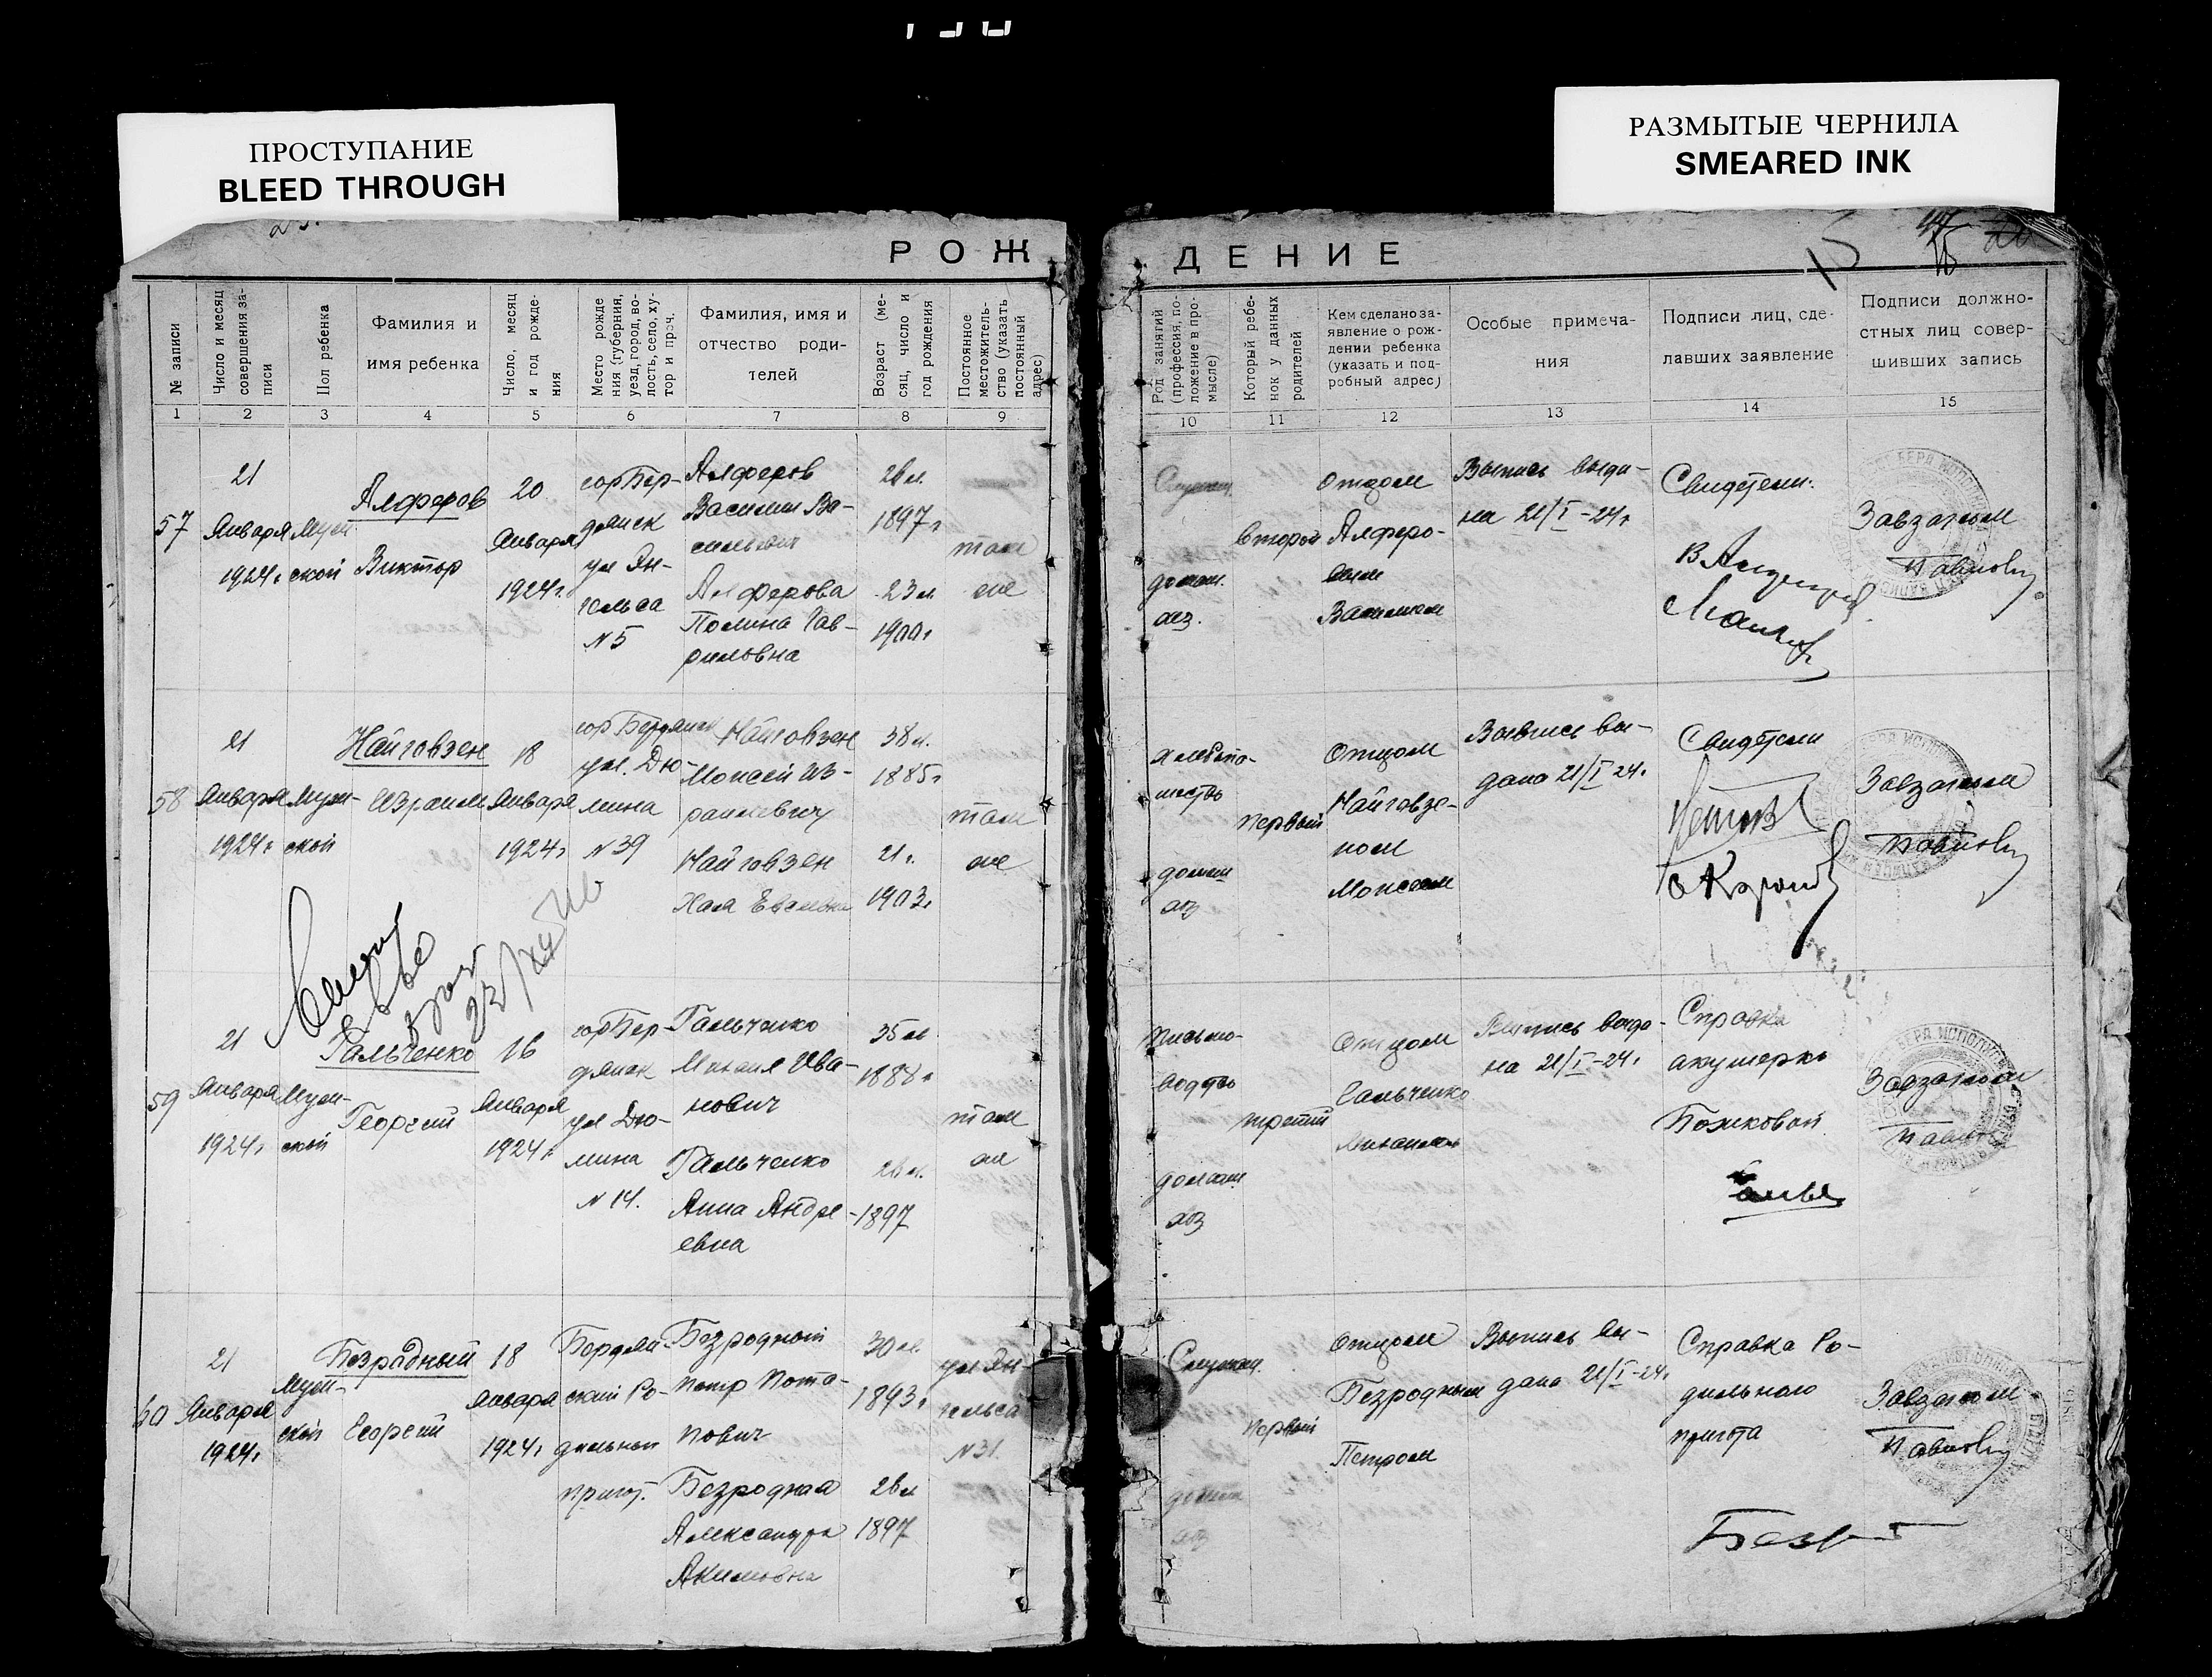 ПРОСТУПАНИЕ
BLEED THROUGH
РАЗМЫТЫЕ ЧЕРНИЛА
SMEARED INK
РОЖДЕНИЕ
15
№ записи
Число и месяц совершения записи
Пол ребенка
Фамилия и
имя ребенка
Число, месяц и год рождения
Место рожде
ния (губерния,
уезд, город, во-
лость, село, ху-
тор и проч.
Фамилия, имя и
отчество роди-
телей
Возраст (ме-
сяц, число и
год рождения
Постоянное
местожитель-
ство (указать
постоянный
адрес)
Род занятий
(профессия, по-
ложение в про-
мысле)
Который ребе-
нок у данных
родителей
Кем сделано за-
явление о рож-
дении ребенка
(указать и под-
робный адрес)
Особые примеча-
ния
Подписи лиц, сде-
лавших заявление
Подписи должно-
стных лиц совер-
шивших запись
1 2 3 4 5 6 7 8 9 10 11 12 13 14 15
57
21
Января
1924г
Муж
ской
Алферов
Виктор
20
Января
1924г.
гор Бер-
дянск
ул Эн-
гельса
N5
Алферов
Василий Ва-
сильевич
Алферова
Полина Гав-
риловна
26 л.
1897г
23 л
1900г
там
же
Служащ.
домаш.
хоз.
второй
Отцом
Алферо-
вым
Василием
Выпись выда-
на 21/I-24г
Свидетели:
Завзагсом
58
21
Января
1924г
Муж-
ской
Найговзен
Израиль
18
Января
1924г
гор Бердянск
ул. Дю-
мина
N39
Найговзен
Моисей Из-
раилевич
Найговзен
Хая
38 л.
1885г
21 г.
1903г
там
же
домаш
хоз
первый
Отцом
Найговзе-
ном
Моисеем
Выпись вы-
дана 21/I 24г
Свидетели
Завзагсом
59
21
Января
1924г
Муж-
ской
Гальченко
Георгий
16
Января
1924г
гор Бер
дянск
ул Дю-
мина
N 14.
Гальченко
Михаил Ива-
нович
Гальченко
Анна Андре-
евна
35 л
1888г
26 л.
1897
там
же
письмо-
водство
домаш
хоз
третий
Отцом
Гальченко
Михаилом
Выпись выда-
на 21/I-24г
Справка
акушерки
Божковой
Завзагсом
60
21
Января
1924г
Муж-
ской
Безрадный
Георгий
18
Января
1924г
Бердян-
ский Ро-
дильный
приют.
Безродный
Петр Пота-
пович
Безродная
Александра
Акимовна
30 л.
1893г
26 л
1897
ул Эн-
гельса
N31
Служащ.
домаш
хоз
первый
Отцом
Безродным
Петром
Выпись вы-
дана 21/I-24г
Справка Ро-
дильного
приюта
Завзагсом